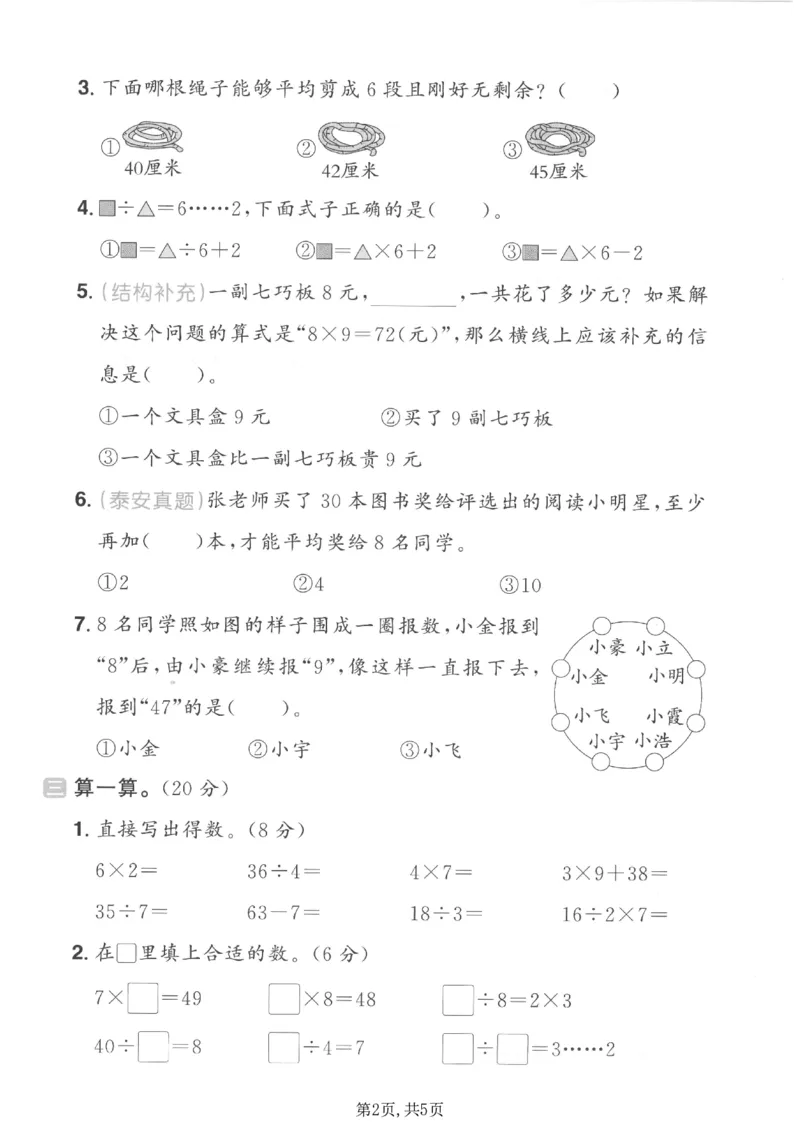 3. 下面哪根绳子能够平均剪成 6 段且刚好无剩余?(  )
① ② ③
40厘米 42厘米 45厘米
4. ■÷▲=6……2,下面式子正确的是(  )。
①■=▲÷6+2 ②■=▲×6+2 ③■=▲×6-2
5. (结构补充)一副七巧板 8 元,________,一共花了多少元? 如果解
决这个问题的算式是“8×9=72(元)”,那么横线上应该补充的信
息是(  )。
①一个文具盒 9 元 ②买了 9 副七巧板
③一个文具盒比一副七巧板贵 9 元
6. (泰安真题)张老师买了 30 本图书奖给评选出的阅读小明星,至少
再加(  )本,才能平均奖给 8 名同学。
①2 ②4 ③10
7. 8 名同学照如图的样子围成一圈报数,小金报到
“8”后,由小豪继续报“9”,像这样一直报下去,
报到“47”的是(  )。
①小金 ②小宇 ③小飞
小豪 小立
小金 小明
小飞 小霞
小宇 小浩
三 算一算。(20 分)
1. 直接写出得数。(8 分)
6×2= 36÷4= 4×7= 3×9+38=
35÷7= 63-7= 18÷3= 16÷2×7=
2. 在□里填上合适的数。(6 分)
7×□=49 □×8=48 □÷8=2×3
40÷□=8 □÷4=7 □÷□=3……2
第2页,共5页